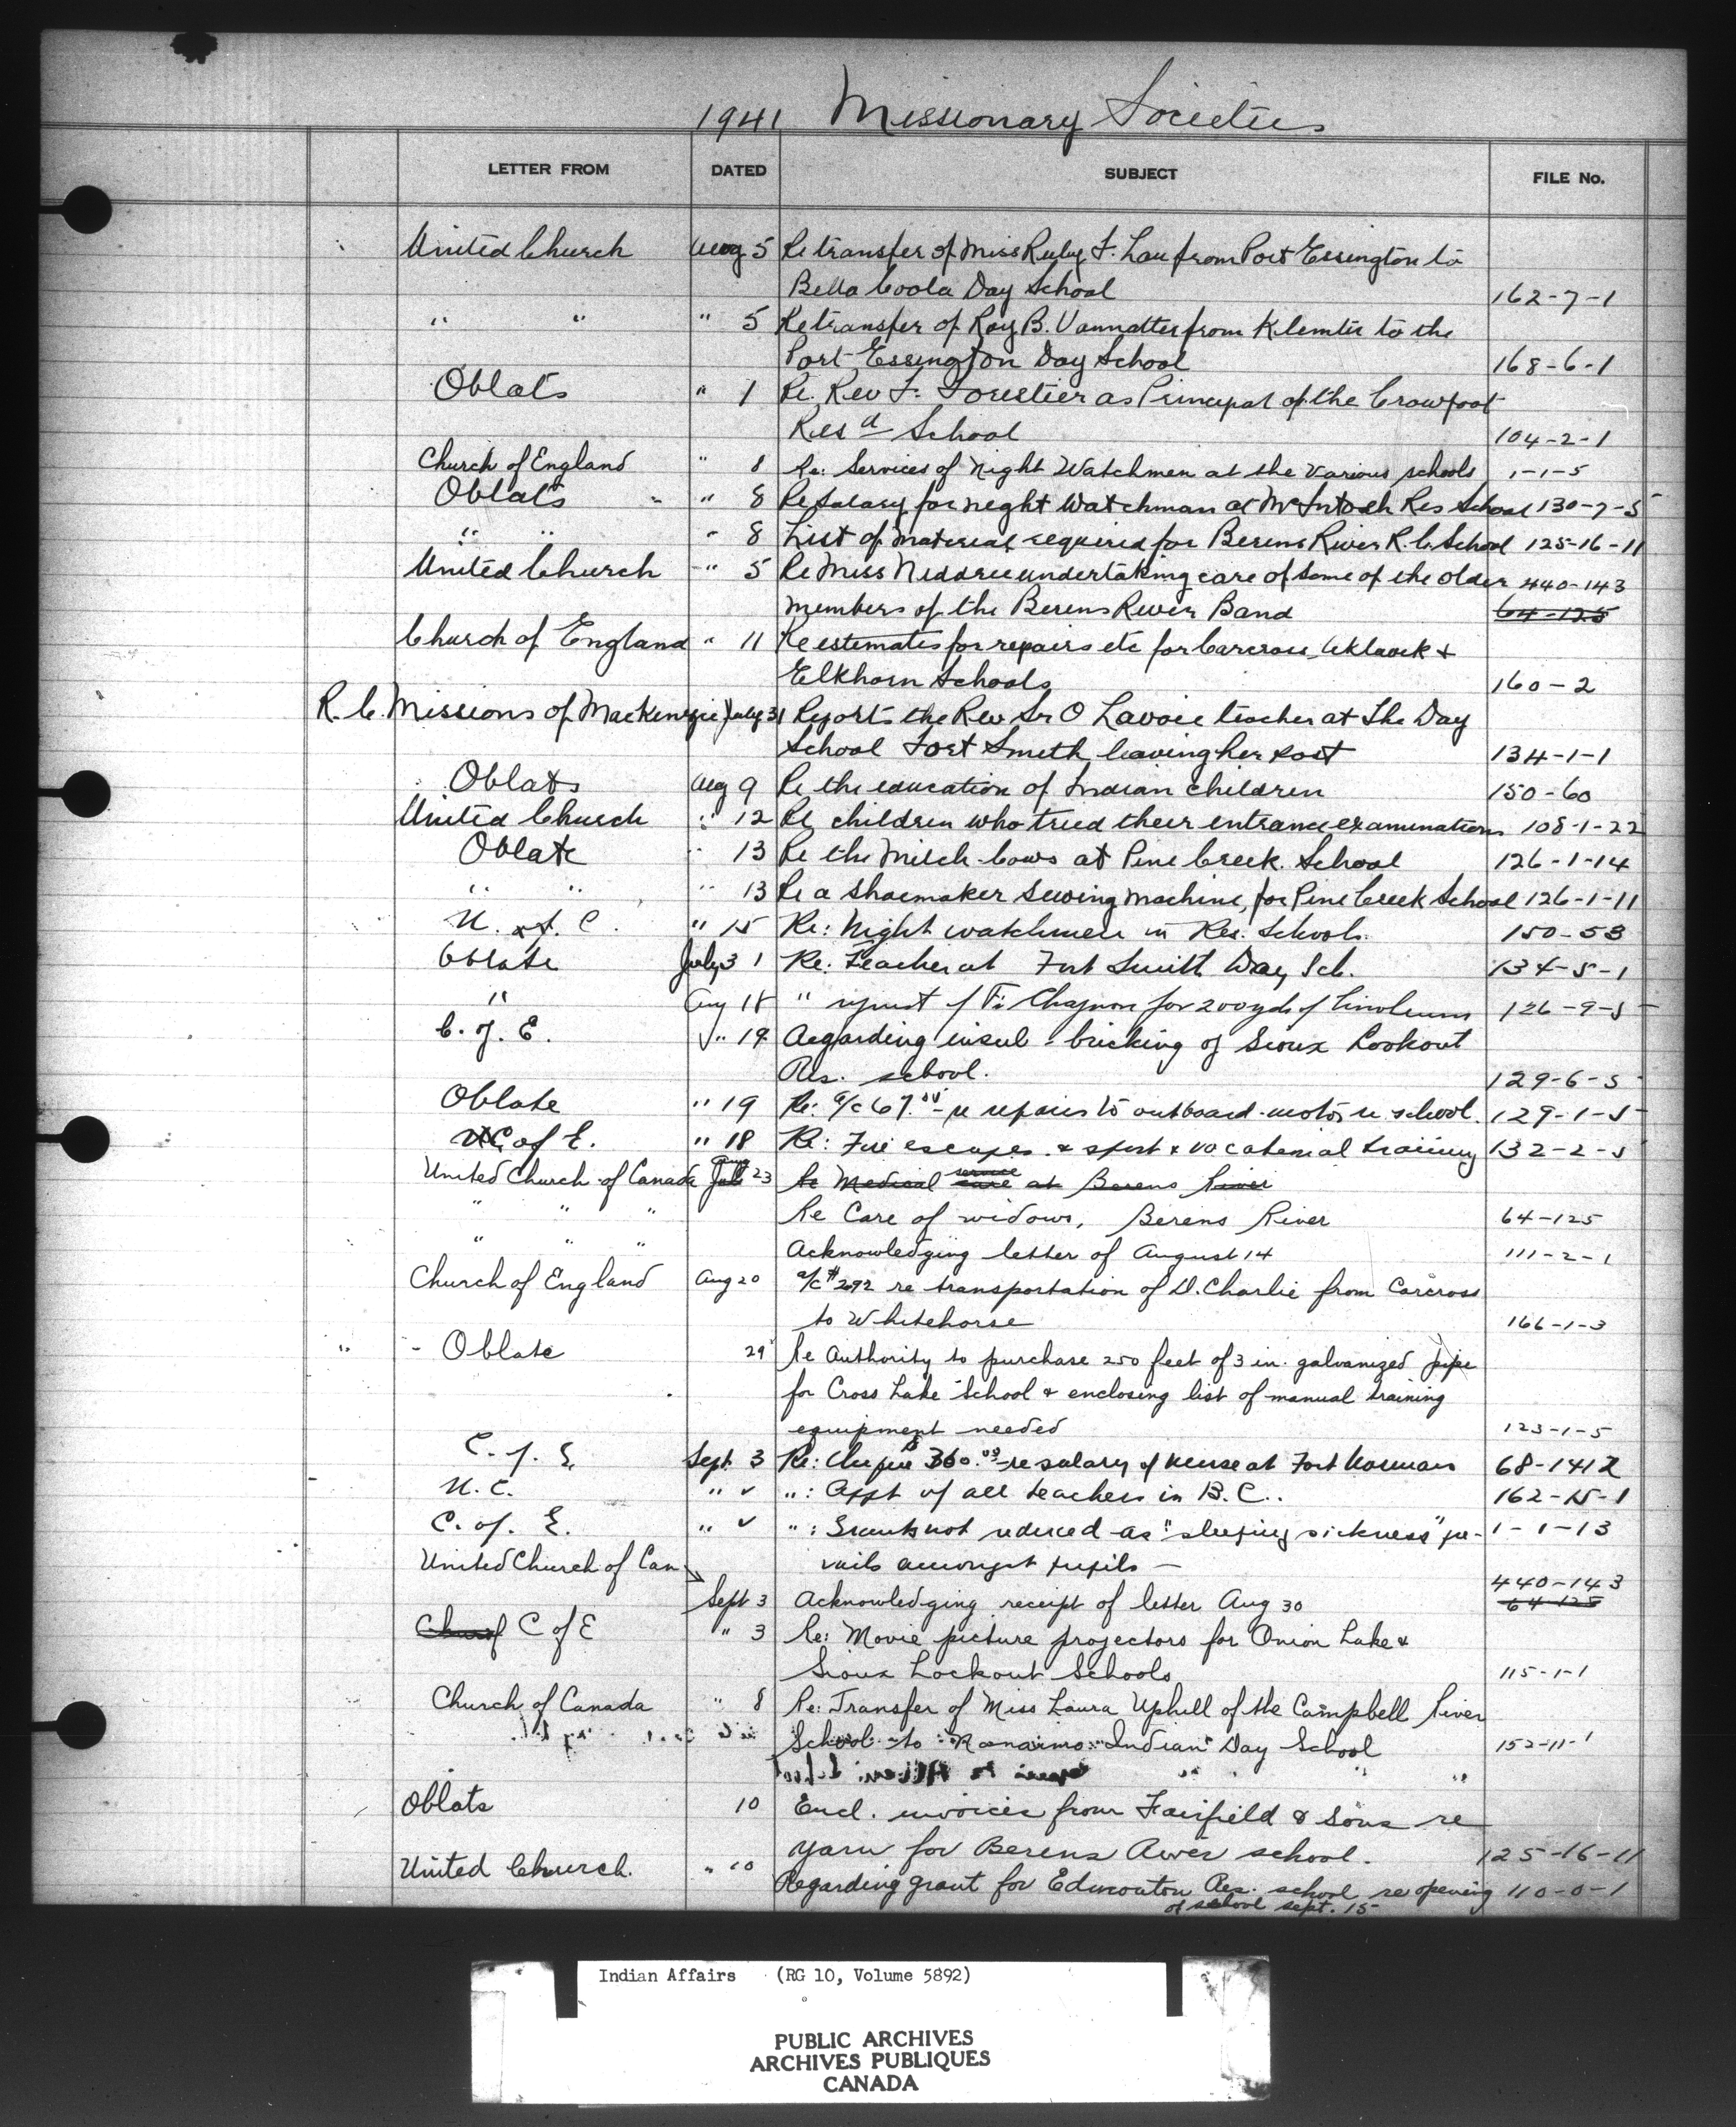 1941 Missionary Societies
LETTER FROM DATED SUBJECT FILE No.
United Church Aug 5 Re transfer of Miss Ruby F. Law from Port Essington to
Bella Coola Day School 162-7-1
" " " 5 Re transfer of Roy B. Vannatter from Klemtu to the
Port Essington Day School 168-6-1
Oblats " 1 Re. Rev F. Forestier as Principal of the Crowfoot
Resd School 104-2-1
Church of England " 8 Re: Services of Night Watchmen at the various schools 1-1-5
Oblats " " 8 Re salary for night watchman at McIntosh Res School 130-7-5
" " " 8 List of material required for Berens River R.C. School 125-16-11
United Church " 5 Re Miss Niddrie undertaking care of some of the older 440-143
members of the Berens River Band 64-125
Church of England " 11 Re estimates for repairs etc for Carcross, Aklavik &
Elkhorn Schools 160-2
R.C. Missions of Mackenzie July 31 Reports the Rev Sr O Lavoie teacher at the Day
School Fort Smith leaving her post 134-1-1
Oblats Aug 9 Re the education of Indian children 150-60
United Church " 12 Re children who tried their entrance examinations 108-1-22
Oblate " 13 Re the Milch Cows at Pine Creek School 126-1-14
" " " 13 Re a shoemaker sewing machine, for Pine Creek School 126-1-11
U. of C. " 15 Re: Night watchmen in Res. Schools. 150-53
Oblate July 31 Re: Teacher at Fort Smith Day Sch. 134-5-1
" Aug 18 " request of Fr. Chagnon for 200 yds of linoleum 126-9-5
C. of E. " 19 Regarding insul-bricking of Sioux Lookout
Res. school. 129-6-5
Oblate " 19 Re: a/c 67. re repairs to outboard-motor school. 129-1-5
C of E. " 18 Re: Fire escapes & sport & vocational training 132-2-5
United Church of Canada Aug July 23 Re Medical service care at Berens River
" " " Re Care of widows, Berens River 64-125
" " " Acknowledging letter of August 14 111-2-1
Church of England Aug 20 a/c #2092 re transportation of D. Charlie from Carcross
to Whitehorse 166-1-3
" - Oblate 29 Re Authority to purchase 250 feet of 3 in. galvanized pipe
for Cross Lake School & enclosing list of manual training
equipment needed 123-1-5
C. of E. Sept. 3 Re: Cheque 360.00 re salary of nurse at Fort Norman 68-1412
U.C. " " ": Appt of all teachers in B.C.. 162-15-1
C. of. E. " " ": Grants not reduced as "sleeping sickness" pre- 1-1-13
vails amongst pupils -
United Church of Can 440-143
Sept 3 Acknowledging receipt of letter Aug 30 64-125
Church C of E " 3 Re: Movie picture projectors for Onion Lake &
Sioux Lookout Schools 115-1-1
Church of Canada " 8 Re: Transfer of Miss Laura Uphill of the Campbell River
School to Nanaimo Indian Day School 152-11-1
Oblats 10 Encl. invoices from Fairfield & Sons re
yarn for Berens River school. 125-16-11
United Church. " 10 Regarding grant for Edmonton Res. school re opening 110-0-1
of school sept. 15
Indian Affairs (RG 10, Volume 5892)
PUBLIC ARCHIVES
ARCHIVES PUBLIQUES
CANADA